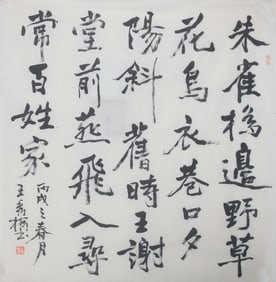 朱雀橋邊野草
花烏衣巷口夕
陽斜舊時王謝
堂前燕飛入尋
常百姓家
丙戌之春月